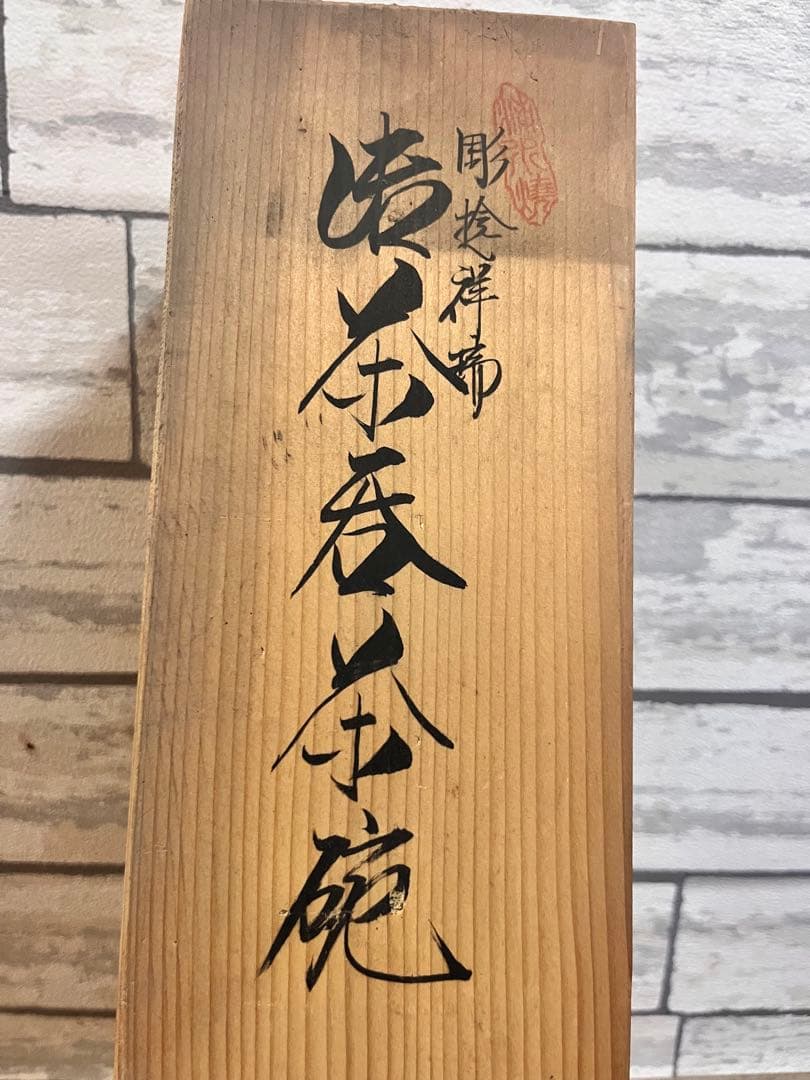 彫捻祥瑞
御茶呑茶碗